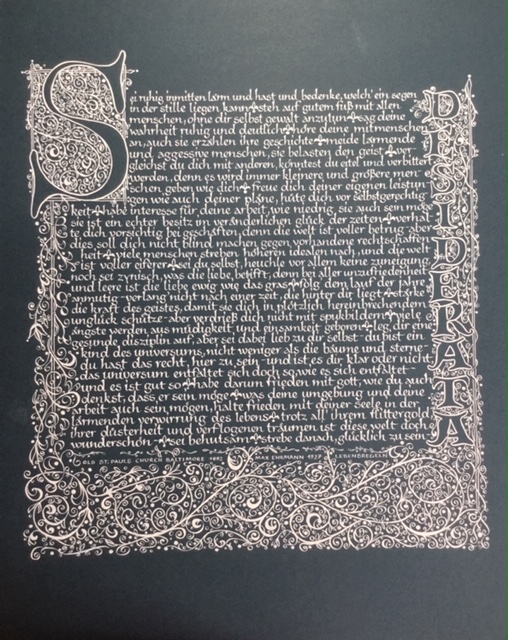 Sei ruhig inmitten lärm und hast und bedenke, welch' ein segen
in der stille liegen kann sten auf gutem fuß mit allen
menschen, ohne dir selbst gewalt anzutun sag deine
wahrheit ruhig und deutlich höre deine mitmenschen
an, auch sie erzählen ihre geschichte meide lärmende
und aggressive menschen, sie belasten den geist ver
gleichst du dich mit anderen, könntest du eitel und verbittert
werden, denn es wird immer kleinere und größere men
schen geben wie dich freue dich deiner eigenen leistun
gen wie auch deiner pläne, hüte dich vor selbstgerechtig
keit habe interesse für deine arbeit, wie niedrig, sie auch sein möge
sie ist ein echter besitz im veränderlichen glück der zeiten verhal
te dich vorsichtig bei geschäften, denn die welt ist voller betrug aber
dies soll dich nicht blind machen gegen vorhandene rechtschaffen
heit viele menschen streben höheren idealen nach, und die welt
ist voller eiferer sei du selbst, heuchle vor allem keine zuneigung
noch sei zynisch, was die liebe betifft, denn bei aller unzufriedenheit
und leere ist die liebe ewig wie das gras folg dem lauf der jahre
anmutig verlang nicht nach einer zeit, die hinter dir liegt stärke
die kraft des geistes, damit sie dich in plötzlich hereinbrechendem
unglück schütze aber verdrieß dich nicht mit spukbildern viele
ängste werden aus müdigkeit und einsamkeit geboren leg dir eine
gesunde disziplin auf, aber sei dabei lieb zu dir selbst du bist ein
kind des universums, nicht weniger als die bäume und sterne
du hast das recht, hier zu sein und ist es dir klar oder nicht,
das universum entfaltet sich doch so, wie es sich entfaltet
und es ist gut so habe darum frieden mit gott, wie du auch
denkst, dass, er sein möge was deine umgebung und deine
arbeit auch sein mögen, halte frieden mit deiner seele in der
lärmenden verwirrung des lebens trotz all ihrem flittergold
ihrer düsterheit und verflogenen träumen ist diese welt doch
wunderschön sei behutsam strebe danach, glücklich zu sein
DESIDERATA
OLD ST. PAULS CHURCH BALTIMORE MAX EHRMANN LEBENSREGELN